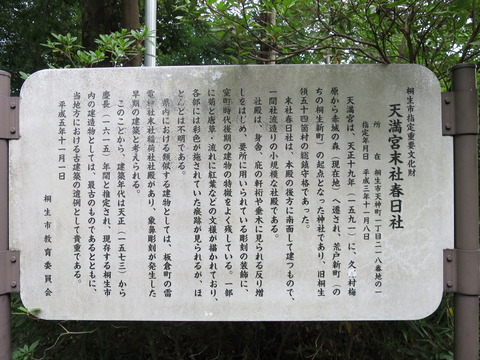 桐生市指定重要文化財
天満宮末社春日社
所在 桐生市天神町一丁目二一八番地の一
指定年月日 平成三年十一月八日
天満宮は、天正十九年(一五九一)に、久方村梅
原から赤城の森(現在地)へ遷され、荒戸新町(の
ちの桐生新町)の起点となった神社であり、旧桐生
領五十四箇村の総鎮守格であった。
末社春日社は、本殿の後方に南面して建つもので、
一間社流造りの小規模な社殿である。
社殿は、身舎、庇の軒桁や垂木に見られる反り増
しをはじめ、要所に用いられている彫刻の装飾に、
室町時代後期の建物の特徴をよく残している。一部
に菊と唐草、流れに紅葉などの文様が描かれており、
各部には彩色が施されていた痕跡が見られるが、ほ
とんどは不明である。
県内における類似する建物としては、板倉町の雷
電神社末社稲荷社社殿があり、象鼻彫刻が発生した
早期の建築と考えられる。
このことから、建築年代は天正(一五七三)から
慶長(一六一五)年間と推定され、現存する桐生市
内の建造物としては、最古のものであるとともに、
当地方における古建築の遺例として貴重である。
平成五年十一月一日
桐生市教育委員会